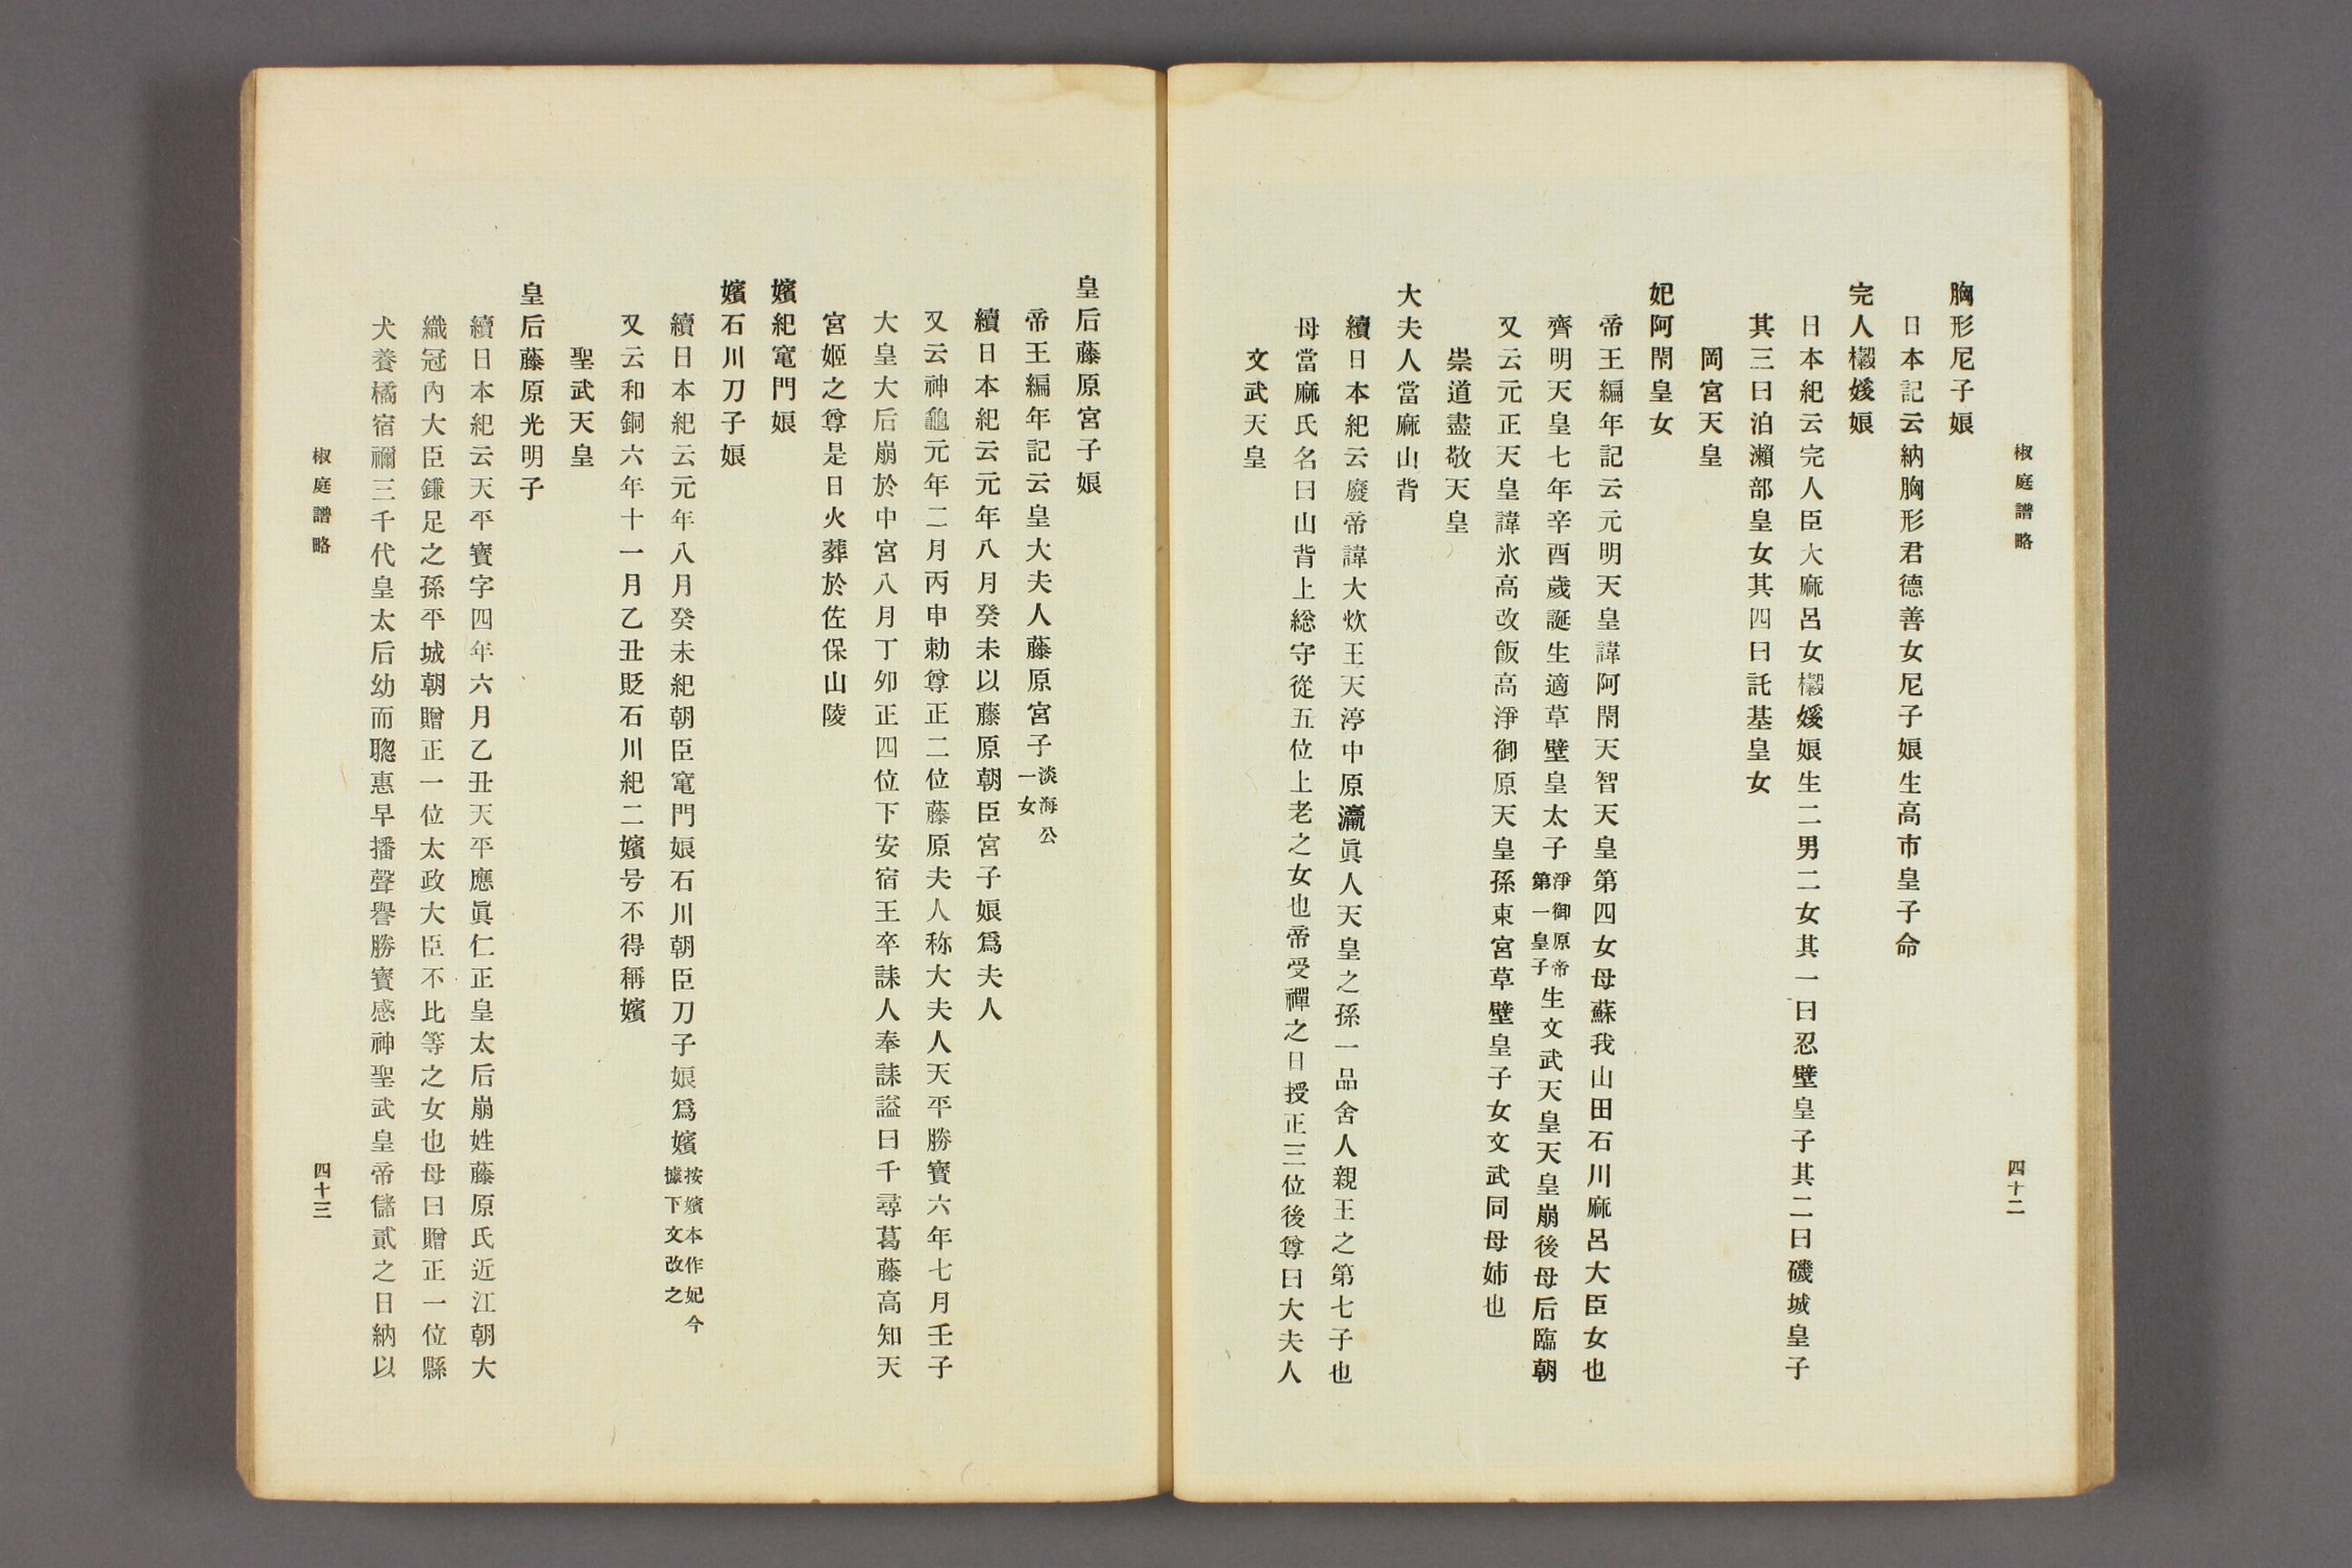 椒庭譜略
四十二
胸形尼子娘
日本記云納胸形君德善女尼子娘生高市皇子命
完人㰏媛娘
日本紀云完人臣大麻呂女㰏媛娘生二男二女其一曰忍壁皇子其二曰磯城皇子
其三曰泊瀨部皇女其四曰託基皇女
岡宮天皇
妃阿閇皇女
帝王編年記云元明天皇諱阿閇天智天皇第四女母蘇我山田石川麻呂大臣女也
齊明天皇七年辛酉歲誕生適草壁皇太子淨御原帝第一皇子生文武天皇天皇崩後母后臨朝
又云元正天皇諱氷高改飯高淨御原天皇孫東宮草壁皇子女文武同母姉也
崇道盡敬天皇
大夫人當麻山背
續日本紀云廢帝諱大炊王天渟中原瀛眞人天皇之孫一品舍人親王之第七子也
母當麻氏名曰山背上総守從五位上老之女也帝受禪之日授正三位後尊曰大夫人
文武天皇
皇后藤原宮子娘
帝王編年記云皇大夫人藤原宮子淡海公一女
續日本紀云元年八月癸未以藤原朝臣宮子娘爲夫人
又云神龜元年二月丙申勅尊正二位藤原夫人称大夫人天平勝寶六年七月壬子
大皇大后崩於中宮八月丁卯正四位下安宿王卒誄人奉誄謚曰千尋葛藤高知天
宮姬之尊是日火葬於佐保山陵
嬪紀竃門娘
嬪石川刀子娘
續日本紀云元年八月癸未紀朝臣竃門娘石川朝臣刀子娘爲嬪按嬪本作妃今據下文改之
又云和銅六年十一月乙丑貶石川紀二嬪号不得稱嬪
聖武天皇
皇后藤原光明子
續日本紀云天平寶字四年六月乙丑天平應眞仁正皇太后崩姓藤原氏近江朝大
織冠內大臣鎌足之孫平城朝贈正一位太政大臣不比等之女也母曰贈正一位縣
犬養橘宿禰三千代皇太后幼而聰惠早播聲譽勝寶感神聖武皇帝儲貳之日納以
椒庭譜略
四十三